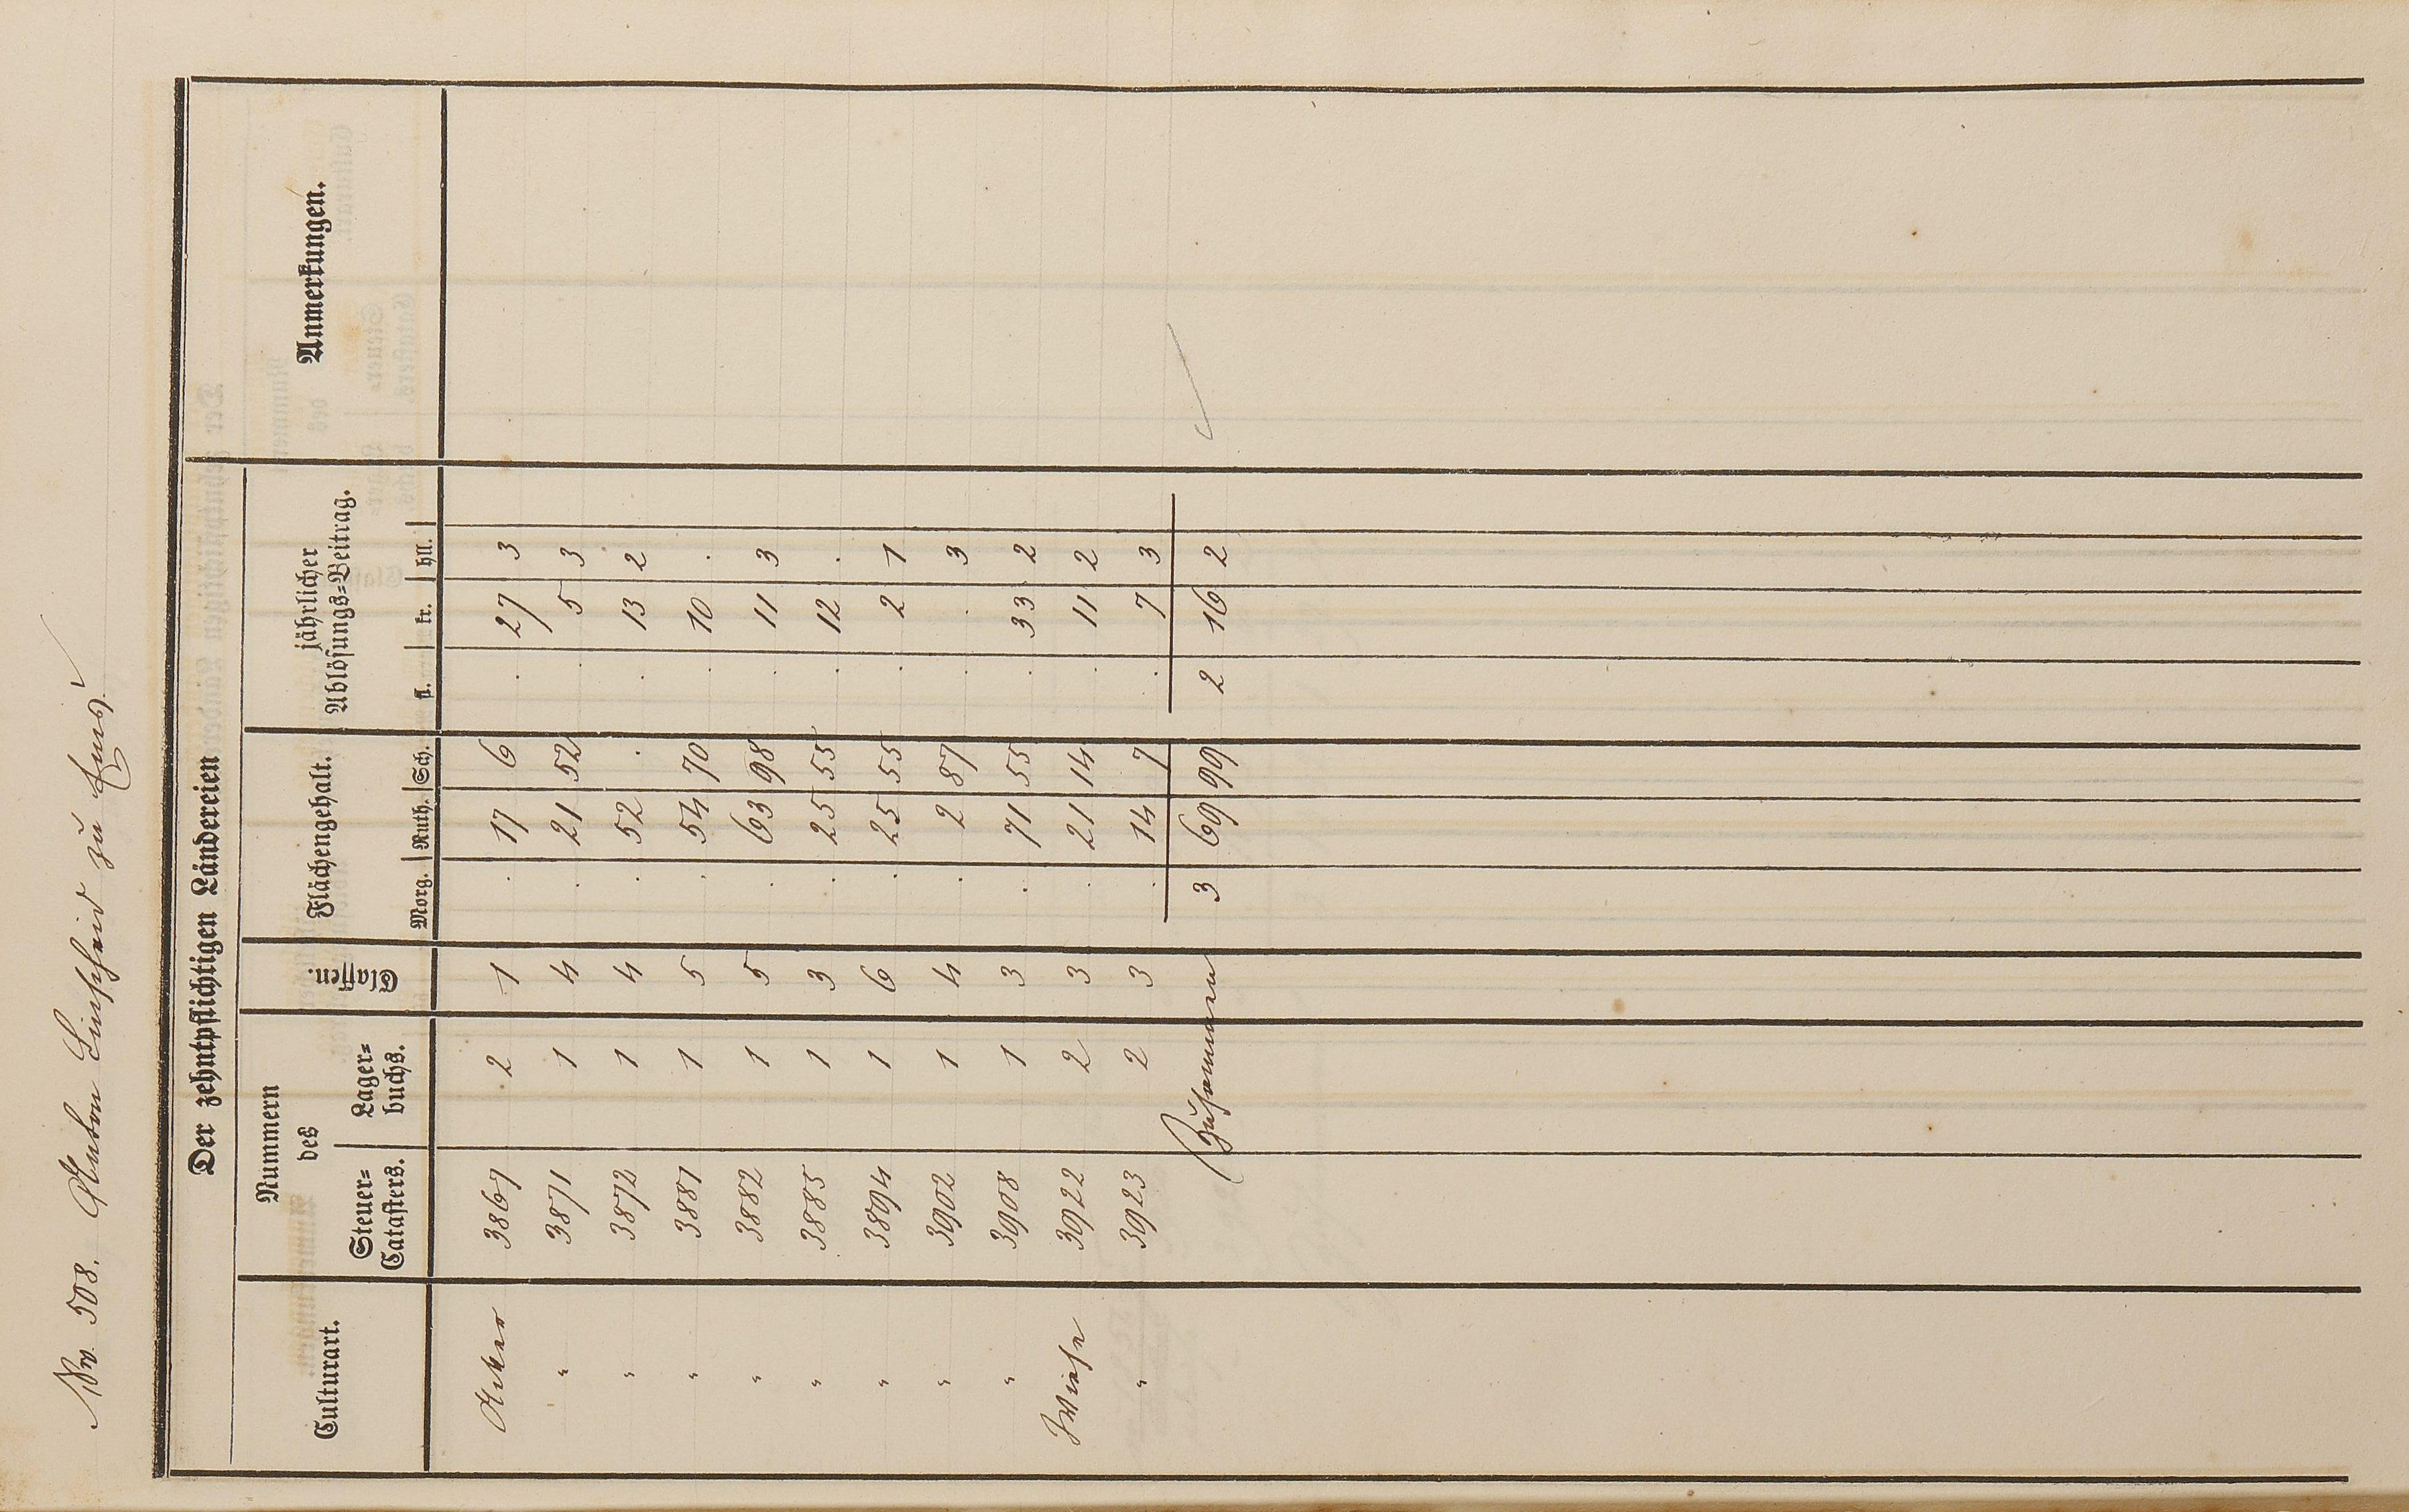 No. 508. Anton Linscheid zu Ems
Der zehntpflichtigen Ländereien
Culturart. | Nummern des Steuer=Catasters. | Nummern des Lager=buchs. | Classen. | Flächengehalt. Morg. | Ruth. | Sch. | jährlicher Ablösungs=Beitrag. fl. | kr. | hll. | Anmerkungen.
Acker 3867 2 1 . 17 6 . 27 3
" 3871 1 4 . 21 52 . 5 3
" 3872 1 4 . 52 . . 13 2
" 3881 1 5 . 54 70 . 10 .
" 3882 1 5 . 63 98 . 11 3
" 3885 1 3 . 25 55 . 12 .
" 3894 1 6 . 25 55 . 2 1
" 3902 1 4 . 2 87 . . 3
" 3908 1 3 . 71 55 . 33 2
Wiese 3922 2 3 . 21 14 . 11 2
" 3923 2 3 . 14 7 . 7 3
Zusammen 3 69 99 2 16 2